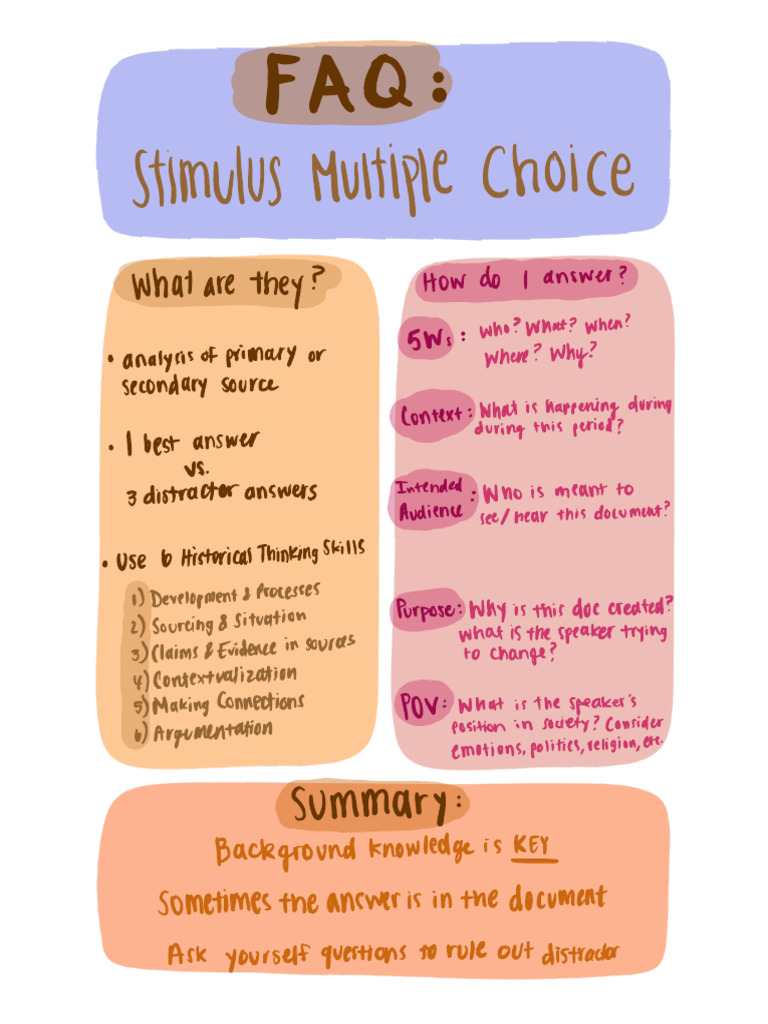 FAQ:
Stimulus Multiple Choice
What are they?
• analysis of primary or
secondary source
• 1 best answer
vs.
3 distractor answers
• Use 6 Historical Thinking Skills
1) Development & Processes
2) Sourcing & Situation
3) Claims & Evidence in sources
4) Contextualization
5) Making Connections
6) Argumentation
How do I answer?
5Ws: Who? What? When?
Where? Why?
Context: What is happening during
during this period?
Intended
Audience: Who is meant to
see/hear this document?
Purpose: Why is this doc created?
what is the speaker trying
to change?
POV: What is the speaker's
position in society? Consider
emotions, politics, religion, etc.
Summary:
Background knowledge is KEY
Sometimes the answer is in the document
Ask yourself questions to rule out distractor